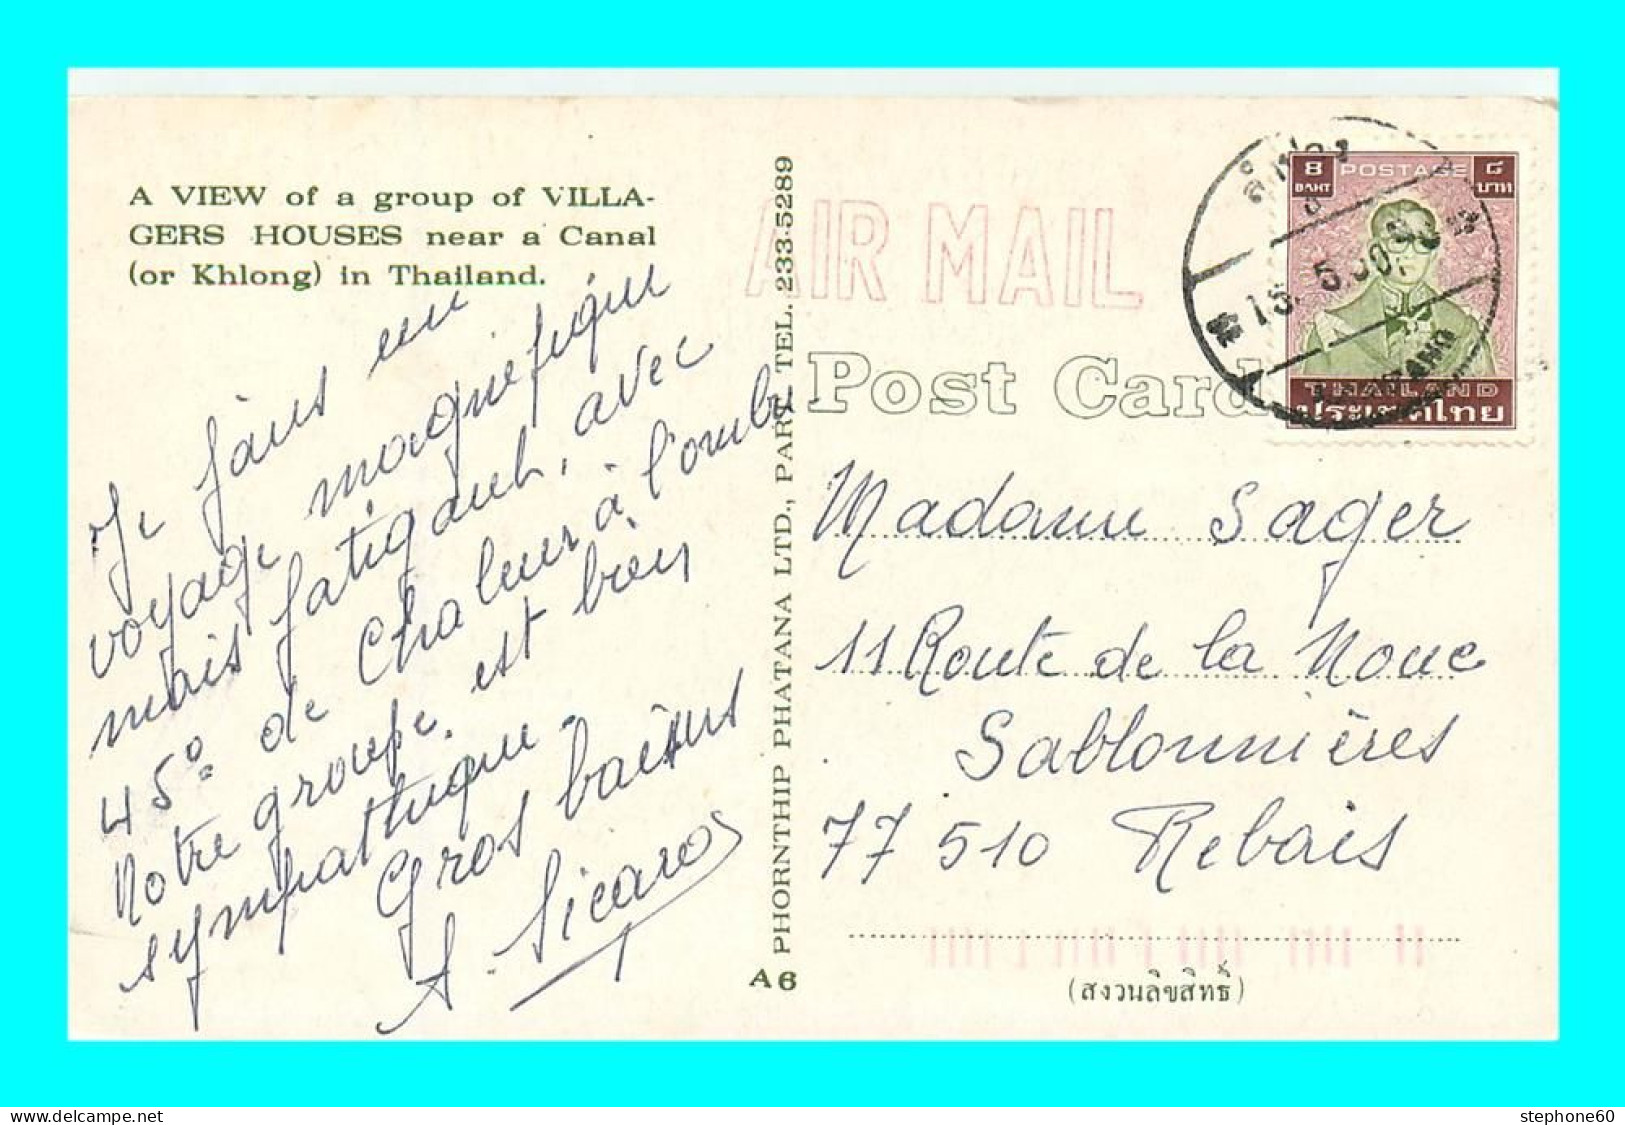 A VIEW of a group of VILLA-
GERS HOUSES near a Canal
(or Khlong) in Thailand.
Je fais un
voyage magnifique
mais fatigant, avec
45° de chaleur à l'ombre.
Notre groupe est bien
sympathique.
Gros baisers
PHORNTHIP PHATANA LTD., PARS TEL. 233-5289
A6
AIR MAIL
Post Card
8 POSTAGE ๘
BAHT บาท
THAILAND
ประเทศไทย
ลำปาง
15. 5.
Madame Sager
11 Route de la Noue
Sablonnières
77 510 Rebais
(สงวนลิขสิทธิ์)
stephone60